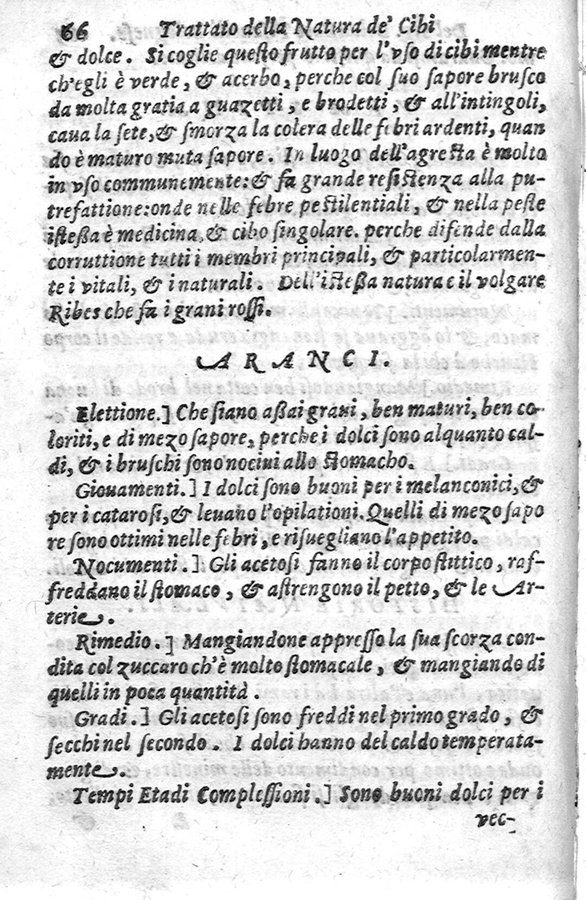 66 Trattato della Natura de' Cibi
& dolce. Si coglie questo frutto per l'vso di cibi mentre
ch'egli è verde, & acerbo, perche col suo sapore brusco
da molta gratia a guazetti, e brodetti, & all'intingoli,
caua la sete, & smorza la colera delle febri ardenti, quan
do è maturo muta sapore. In luogo dell'agresta è molto
in vso communemente: & fa grande resistenza alla pu-
trefattione: onde nelle febre pestilentiali, & nella peste
isteßa è medicina, & cibo singolare. perche difende dalla
corruttione tutti i membri principali, & particolarmen-
te i vitali, & i naturali. Dell'isteßa natura e il volgare
Ribes che fa i grani rossi.
ARANCI.
Elettione.] Che siano aßai graui, ben maturi, ben co-
loriti, e di mezo sapore, perche i dolci sono alquanto cal-
di, & i bruschi sono nocini allo stomacho.
Giouamenti.] I dolci sono buoni per i melanconici, &
per i catarosi, & leuano l'opilationi. Quelli di mezo sapo
re sono ottimi nelle febri, e risuegliano l'appetito.
Nocumenti.] Gli acetosi fanno il corpo stittico, raf-
freddano il stomaco, & astrengono il petto, & le Ar-
terie.
Rimedio.] Mangiandone appresso la sua scorza con-
dita col zuccaro ch'è molto stomacale, & mangiando di
quelli in poca quantità.
Gradi.] Gli acetosi sono freddi nel primo grado, &
secchi nel secondo. I dolci hanno del caldo temperata-
mente.
Tempi Etadi Complessioni.] Sono buoni dolci per i
vec-